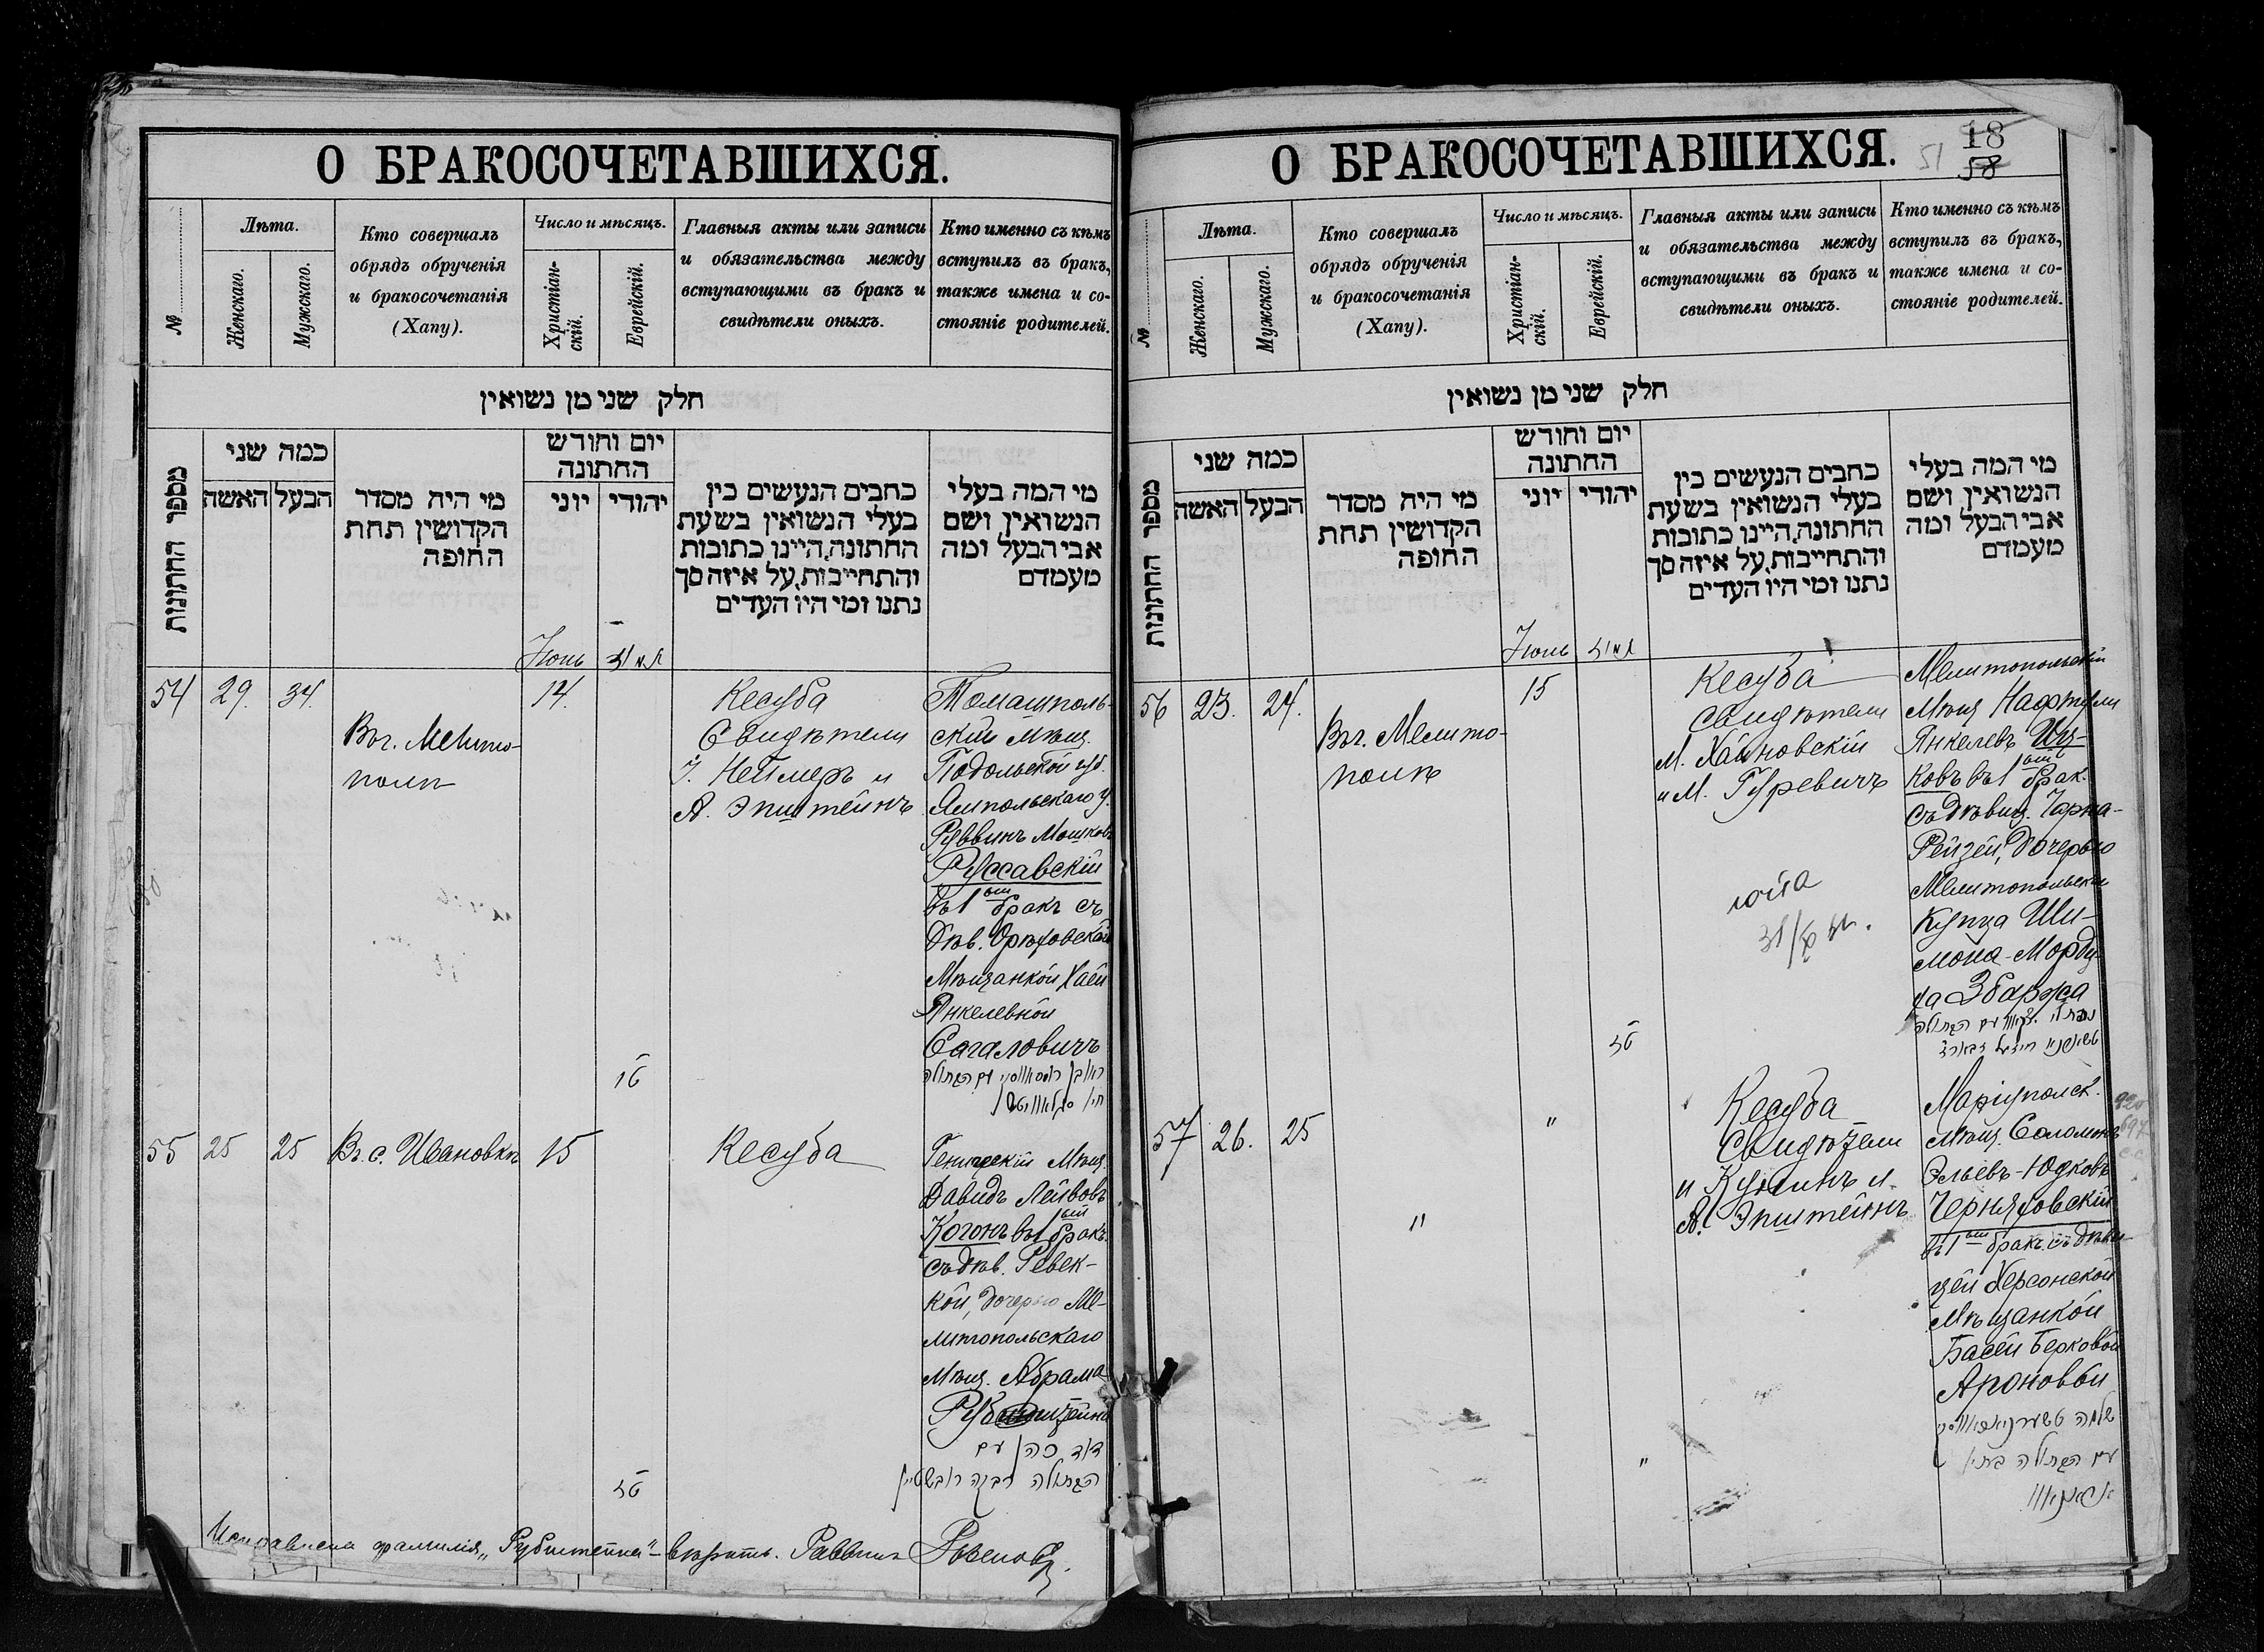 О БРАКОСОЧЕТАВШИХСЯ.
№
Лѣта.
Женскаго.
Мужскаго.
Кто совершалъ
обрядъ обрученія
и бракосочетанія
(Хапу).
Число и мѣсяцъ.
Христіан-
скій.
Еврейскій.
Главныя акты или записи
и обязательства между
вступающими въ бракъ и
свидѣтели оныхъ.
Кто именно съ кѣмъ
вступилъ въ бракъ,
также имена и со-
стояніе родителей.
חלק שני מן נשואין
מספר החתונות
כמה שני
האשה
הבעל
מי היה מסדר
הקדושין תחת
החופה
יום וחודש
החתונה
יוני
יהודי
כתבים הנעשים בין
בעלי הנשואין בשעת
החתונה, היינו כתובות
והתחייבות, על איזה סך
נתנו ומי היו העדים
מי המה בעלי
הנשואין ושם
אבי הבעל ומה
מעמדם
Іюнь
54
29.
34.
Въ г. Мелито-
полѣ
14.
16
Кесуба
Свидѣтели
А. Эпштейнъ
Томашполь-
скій мѣщ.
Подольской губ.
Ямпольскаго у.
Руввинъ Мошковъ
Руссавскій
въ 1 ый бракъ съ
дѣв. Орѣховской
мѣщанкой Хаей
Янкелевной
Сагаловичъ
ראובן רוססאווסקי עם הבתולה
חי' סגלאוויטש
55
25
25
Въ с. Ивановкѣ
15
Кесуба
Геническій мѣщ.
Давидъ Лейбовъ
Когонъ въ 1 ый бракъ
съ дѣв. Ревек-
кой, дочерью Ме-
литопольскаго
мѣщ. Абрама
דוד כהן עם
הבתולה רבקה רובשטיין
Исправлена фамилія „Рубштейна"– вѣрить. Раввинъ
О БРАКОСОЧЕТАВШИХСЯ.
18
58
51
№
Лѣта.
Женскаго.
Мужскаго.
Кто совершалъ
обрядъ обрученія
и бракосочетанія
(Хапу).
Число и мѣсяцъ.
Христіан-
скій.
Еврейскій.
Главныя акты или записи
и обязательства между
вступающими въ бракъ и
свидѣтели оныхъ.
Кто именно съ кѣмъ
вступилъ въ бракъ,
также имена и со-
стояніе родителей.
חלק שני מן נשואין
מספר החתונות
כמה שני
האשה
הבעל
מי היה מסדר
הקדושין תחת
החופה
יום וחודש
החתונה
יוני
יהודי
כתבים הנעשים בין
בעלי הנשואין בשעת
החתונה, היינו כתובות
והתחייבות, על איזה סך
נתנו ומי היו העדים
מי המה בעלי
הנשואין ושם
אבי הבעל ומה
מעמדם
Іюнь
56
23.
24.
Въ г. Мелито-
полѣ
15
Кесуба
Свидѣтели
М. Хайновскій
и М. Гуревичъ
Мелитопольскій
мѣщ. Нафтули
Янкелевъ Иц-
ковъ въ 1 ый брак.
съ дѣвиц. Чарна-
Рейзей, дочерью
Мелитопольск.
купца Ши-
мона-Морду-
ха Збаржа
57
26.
25
"
"
"
Кесуба
Свидѣтели
А. Эпштейнъ
Маріупольск.
мѣщ. Соломонъ
Эльевъ-Юдковъ
Черняховскій
въ 1 ый бракъ съ дѣви-
цей Херсонской
мѣщанкой
Басей Берковой
Ароновой
שלמה טשערניאחאווסקי
עם הבתולה בתי'